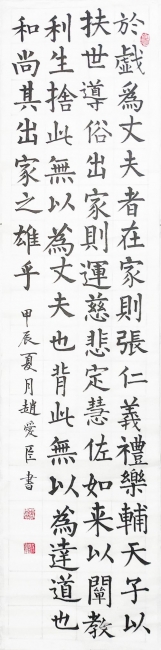 於戲為丈夫者在家則張仁義禮樂輔天子以
扶世導俗出家則運慈悲定慧佐如来以闡教
利生捨此無以為丈夫也背此無以為達道也
和尚其出家之雄乎
甲辰夏月趙愛臣書